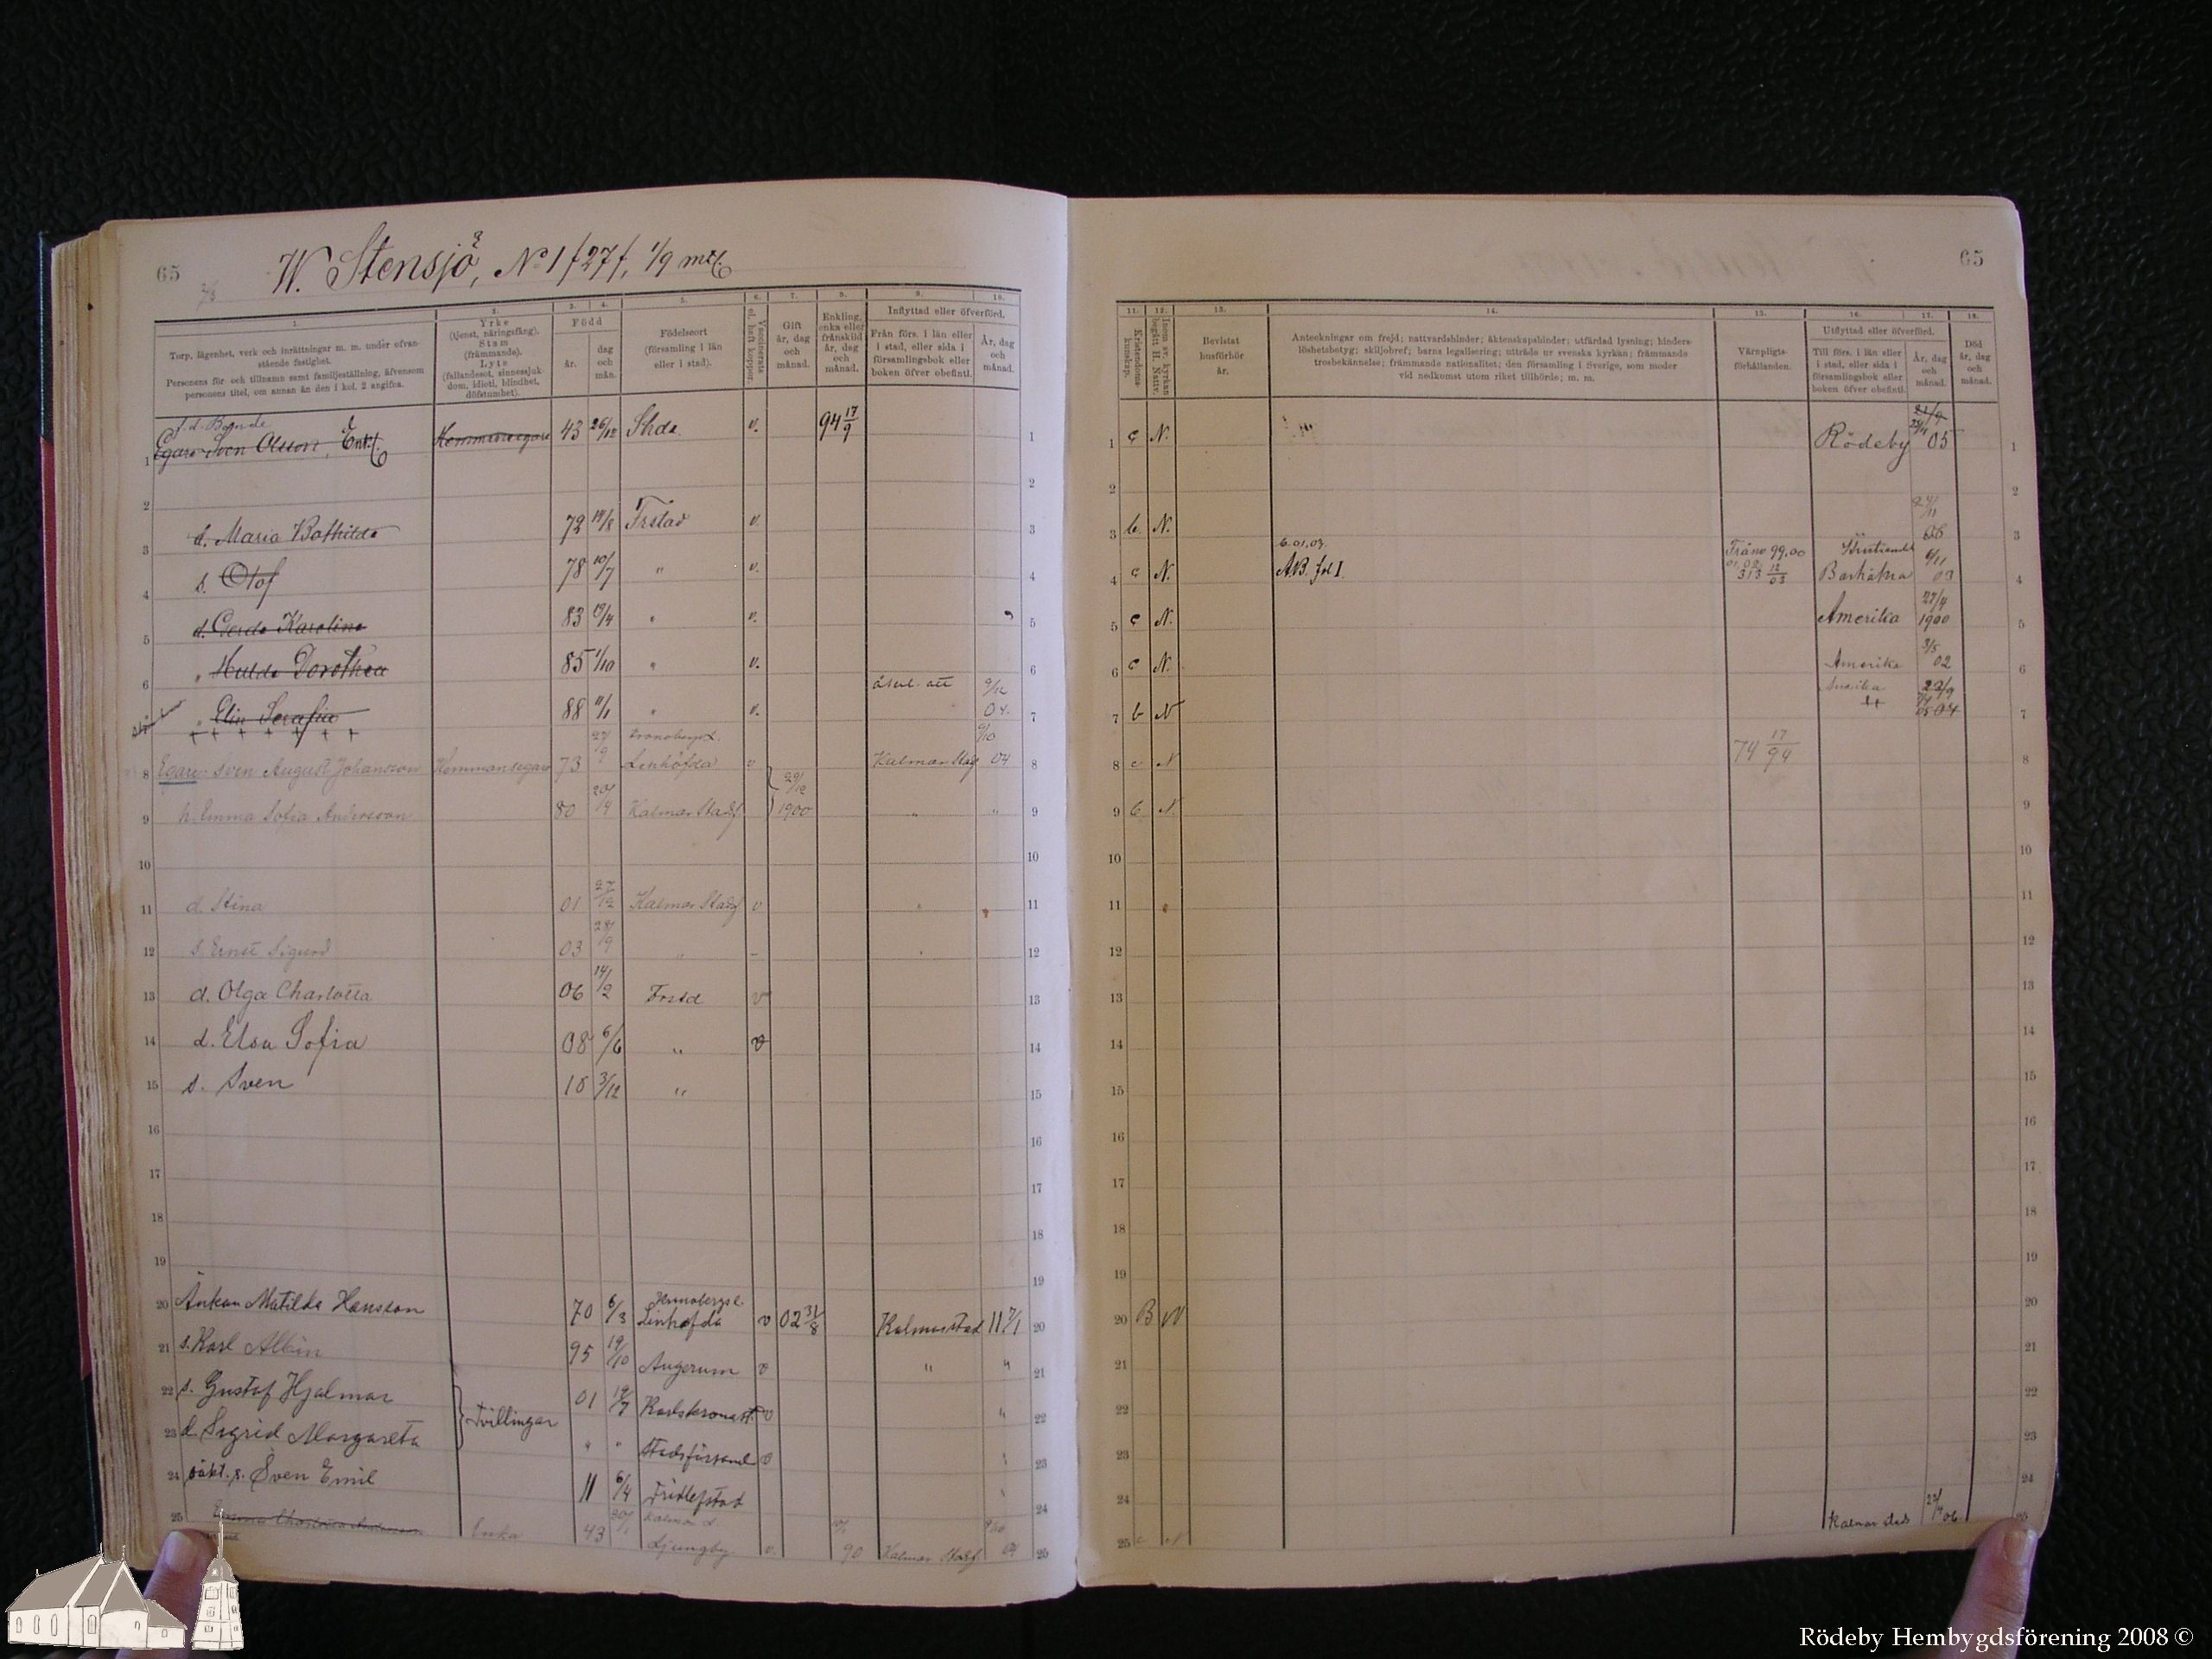 65
W. Stensjö, No 1 /27/, 1/9 mtl
1. 2. 3. 4. 5. 6. 7. 8. 9. 10.
Torp, lägenhet, verk och inrättningar m. m. under ofvanstående fastighet.
Personens för- och tillnamn samt familjeställning, äfvensom personens titel, om annan än den i kol. 2 angifna.
Yrke (tjenst, näringsfång). Stam (främmande). Lyte (fallandesot, sinnessjukdom, idioti, blindhet, döfstumhet).
Född
år.
dag och mån.
Födelseort (församling i län eller i stad).
Vaccinerats el. haft koppor.
Gift år, dag och månad.
Enkling, enka eller frånskild år, dag och månad.
Inflyttad eller öfverförd.
Från förs. i län eller i stad, eller sida i församlingsbok eller boken öfver obefintl.
År, dag och månad.
f. d. Bonde
1 Egare Sven Olsson, Enkl. Hemmansegare 43 26/12 v. 94 17/9 1
2 2
3 d. Maria Bothilda 72 19/8 Frstad v. 3
4 s. Olof 78 10/7 " v. 4
5 d. Gerda Karolina 83 19/4 " v. 5
6 " Hulda Dorothea 85 1/10 " v. 6
" Elin Serafia 88 11/1 " v. 04. 7
8 Egare Sven August Johansson Hemmansegare 73 Kronobergs l. Lenhofda v Kalmar Stadsf 04 8
9 h. Emma Sofia Andersson 80 Kalmar Stadsf 29/12 1900 " " 9
10 10
11 d. Stina 01 27/12 Kalmar Stadsf v " 11
12 s. Ernst Sigurd 03 28/9 " – " 12
13 d. Olga Charlotta 06 14/2 Frstd v 13
14 d. Elsa Sofia 08 6/6 " v 14
15 s. Sven 10 3/12 " 15
16 16
17 17
18 18
19 19
20 Änkan Matilda Hansson 70 6/3 Kronobergs l. Linhofda v 02 31/8 Kalmar stad 11 7/1 20
21 s. Karl Albin 95 19/10 Augerum v " " 21
22 s. Gustaf Hjalmar Tvillingar 01 19/7 Karlskrona st. v " 22
23 d. Sigrid Margareta " " Stadsförsaml v " 23
24 oäkt. s. Sven Emil 11 6/4 Fridlefstad 24
25 Enka 43 Kalmar l. Ljungby v. 90 Kalmar Stadsf. 04 25
65
11. 12. 13. 14. 15. 16. 17. 18.
Kristendomskunskap.
Inom sv. kyrkan begått H. Nattv.
Bevistat husförhör år.
Anteckningar om frejd; nattvardshinder; äktenskapshinder; utfärdad lysning; hinderslöshetsbetyg; skiljobref; barns legalisering; utträde ur svenska kyrkan; främmande trosbekännelse; främmande nationalitet; den församling i Sverige, som moder vid nedkomst utom riket tillhörde; m. m.
Värnpligtsförhållanden.
Utflyttad eller öfverförd.
Till förs. i län eller i stad, eller sida i församlingsbok eller boken öfver obefintl.
År, dag och månad.
Död år, dag och månad.
1 c N. Rödeby 05 1
2 2
3 b. N. 3
4 c N. 6.01,03. A.B. fol I. 99,00 313 12/03 03 4
5 c N. Amerika 27/4 1900 5
6 c N. Amerika 3/5 02 6
7 b N Amerika 04 7
8 c N 74 17/94 8
9 b N. 9
10 10
11 11
12 12
13 13
14 14
15 15
16 16
17 17
18 18
19 19
20 B N 20
21 21
22 22
23 23
24 24
25 c N Kalmar stads 06 25
Rödeby Hembygdsförening 2008 ©